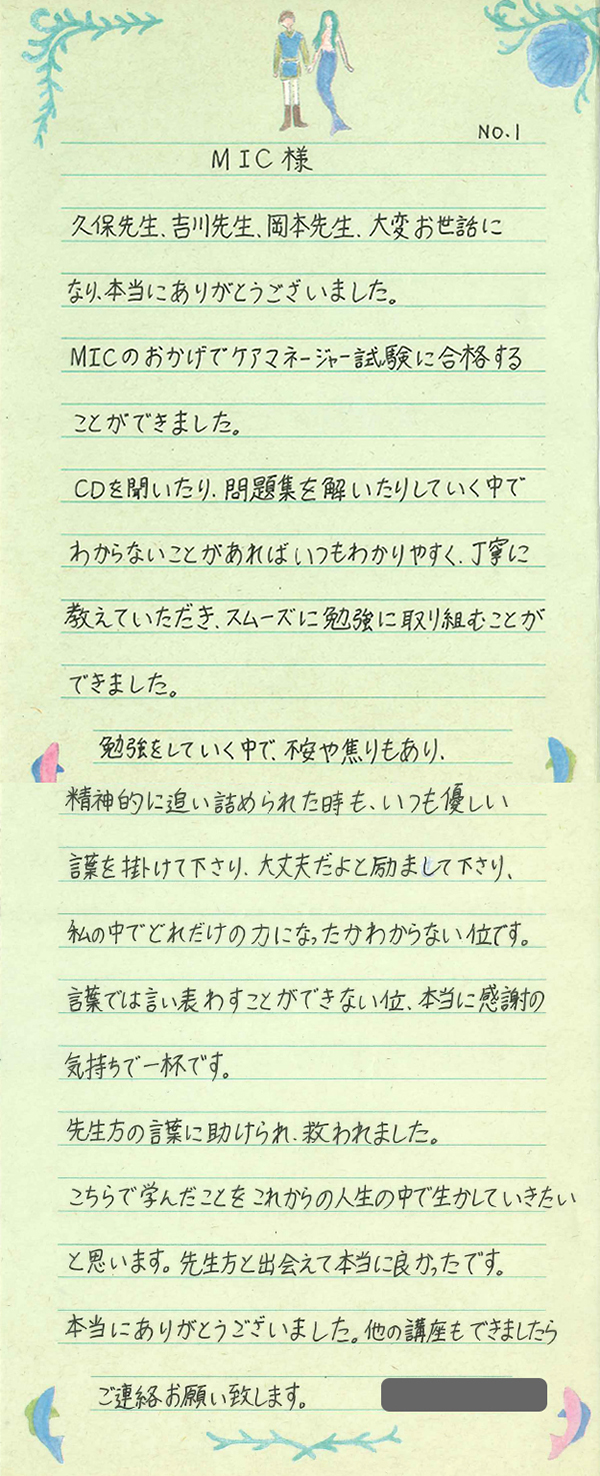 NO.1
MIC様
久保先生、吉川先生、岡本先生、大変お世話に
なり、本当にありがとうございました。
MICのおかげでケアマネージャー試験に合格する
ことができました。
CDを聞いたり、問題集を解いたりしていく中で
わからないことがあればいつもわかりやすく、丁寧に
教えていただき、スムーズに勉強に取り組むことが
できました。
勉強をしていく中で、不安や焦りもあり、
精神的に追い詰められた時も、いつも優しい
言葉を掛けて下さり、大丈夫だよと励まして下さり、
私の中でどれだけの力になったかわからない位です。
言葉では言い表わすことができない位、本当に感謝の
気持ちで一杯です。
先生方の言葉に助けられ、救われました。
こちらで学んだことをこれからの人生の中で生かしていきたい
と思います。先生方と出会えて本当に良かったです。
本当にありがとうございました。他の講座もできましたら
ご連絡お願い致します。